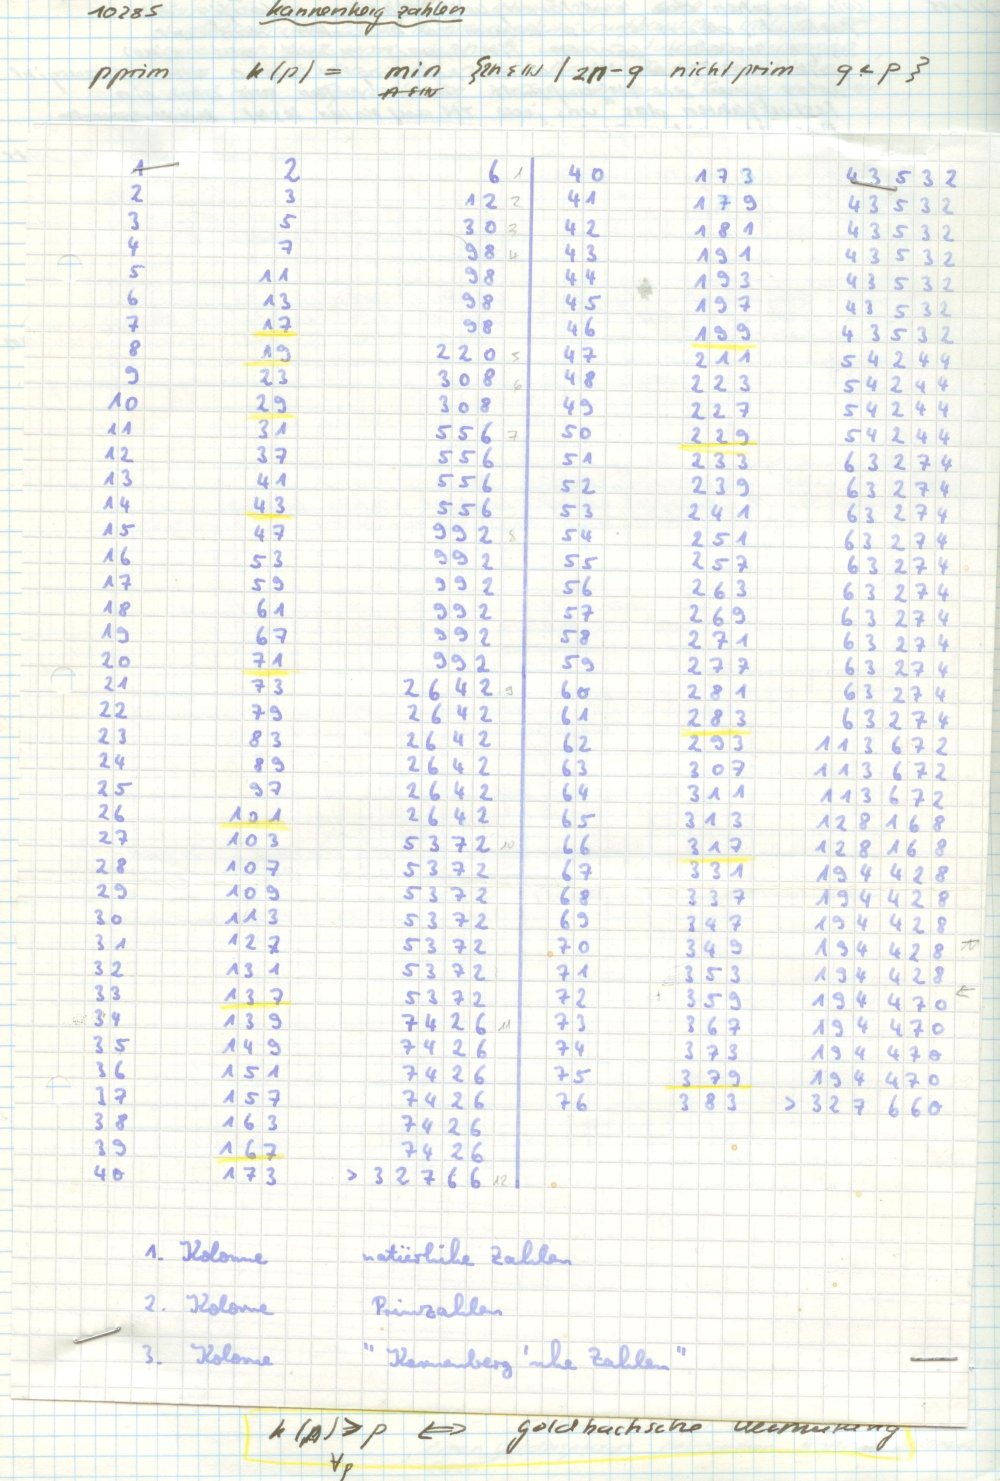 10285 Kannenberg zahlen
p prim k(p) = min {2n ε IN / 2n-q nicht prim q < p}
n ε IN
1 2 6 1
2 3 12 2
3 5 30 3
4 7 98 4
5 11 98
6 13 98
7 17 98
8 19 220 5
9 23 308 6
10 29 308
11 31 556 7
12 37 556
13 41 556
14 43 556
15 47 992 8
16 53 992
17 59 992
18 61 992
19 67 992
20 71 992
21 73 2642 9
22 79 2642
23 83 2642
24 89 2642
25 97 2642
26 101 2642
27 103 5372 10
28 107 5372
29 109 5372
30 113 5372
31 127 5372
32 131 5372
33 137 5372
34 139 7426 11
35 149 7426
36 151 7426
37 157 7426
38 163 7426
39 167 7426
40 173 > 32766 12
40 173 43532
41 179 43532
42 181 43532
43 191 43532
44 193 43532
45 197 43532
46 199 43532
47 211 54244
48 223 54244
49 227 54244
50 229 54244
51 233 63274
52 239 63274
53 241 63274
54 251 63274
55 257 63274
56 263 63274
57 269 63274
58 271 63274
59 277 63274
60 281 63274
61 283 63274
62 293 113672
63 307 113672
64 311 113672
65 313 128168
66 317 128168
67 331 194428
68 337 194428
69 347 194428
70 349 194428
71 353 194428
72 359 194470
73 367 194470
74 373 194470
75 379 194470
76 383 > 327660
1. Kolonne natürliche Zahlen
2. Kolonne Primzahlen
3. Kolonne "Kannenberg'sche Zahlen"
k(p) ≥ p ⟺ goldbachsche Vermutung
∀p